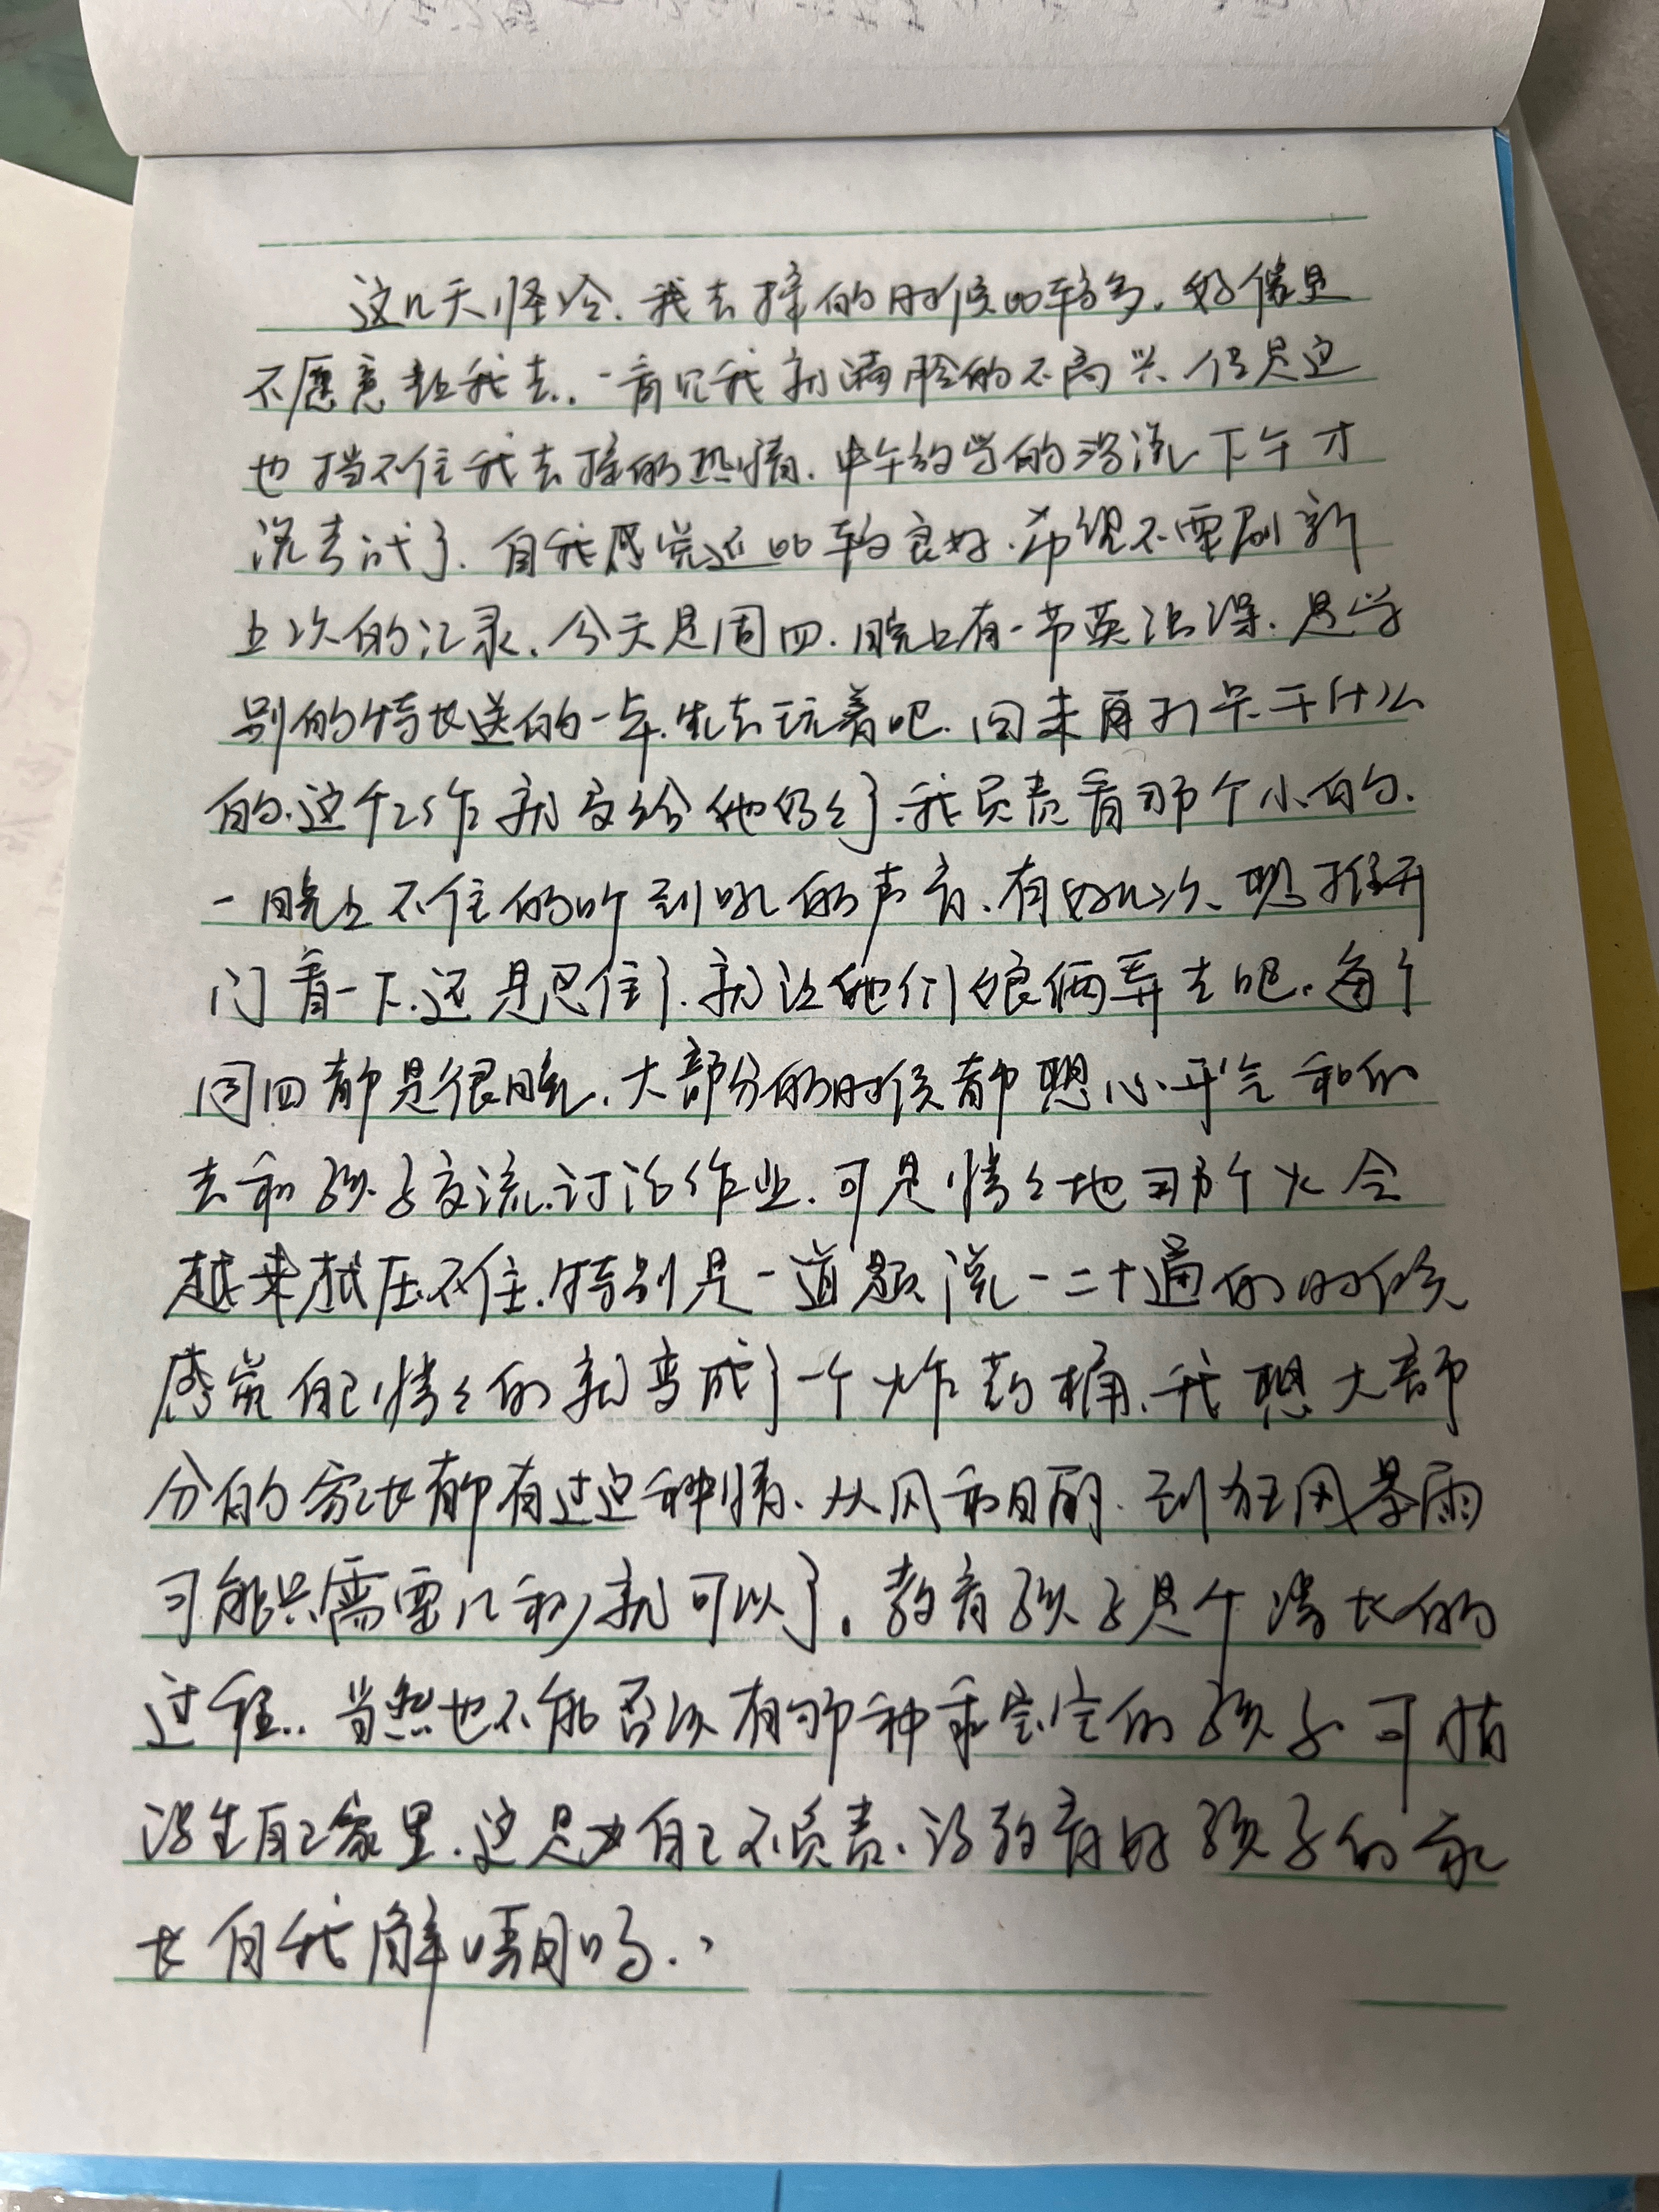 这几天怪冷.我去接的时候比较多.好像是
不愿意让我去..一看见我就满脸的不高兴.但是这
也挡不住我去接的热情.中午放学的没说下午才
说考试了.自我感觉还比较良好.希望不要刷新
上次的记录.今天是周四.晚上有一节英语课.是学
别的特长送的一年.先去玩着吧.回来再打卡干什么
的.这个工作就交给他妈妈了.我负责看那个小的.
一晚上不住的听到吼的声音.有好几次.想推开
门看一下.还是忍住了.就让他们娘俩弄去吧.每个
周四都是很晚.大部分的时候都想心平气和的
去和孩子交流.讨论作业.可是慢慢地那个火会
越来越压不住.特别是一道题说一二十遍的时候
感觉自己慢慢的就变成了一个炸药桶.我想大部
分的家长都有过这种情.从风和日丽.到狂风暴雨
可能只需要几秒就可以了.教育孩子是个漫长的
过程..当然也不能否认有那种乖宝宝的孩子.可惜
没生自己家里.这是为自己不负责.没教育好孩子的家
长自我解嘲吗..